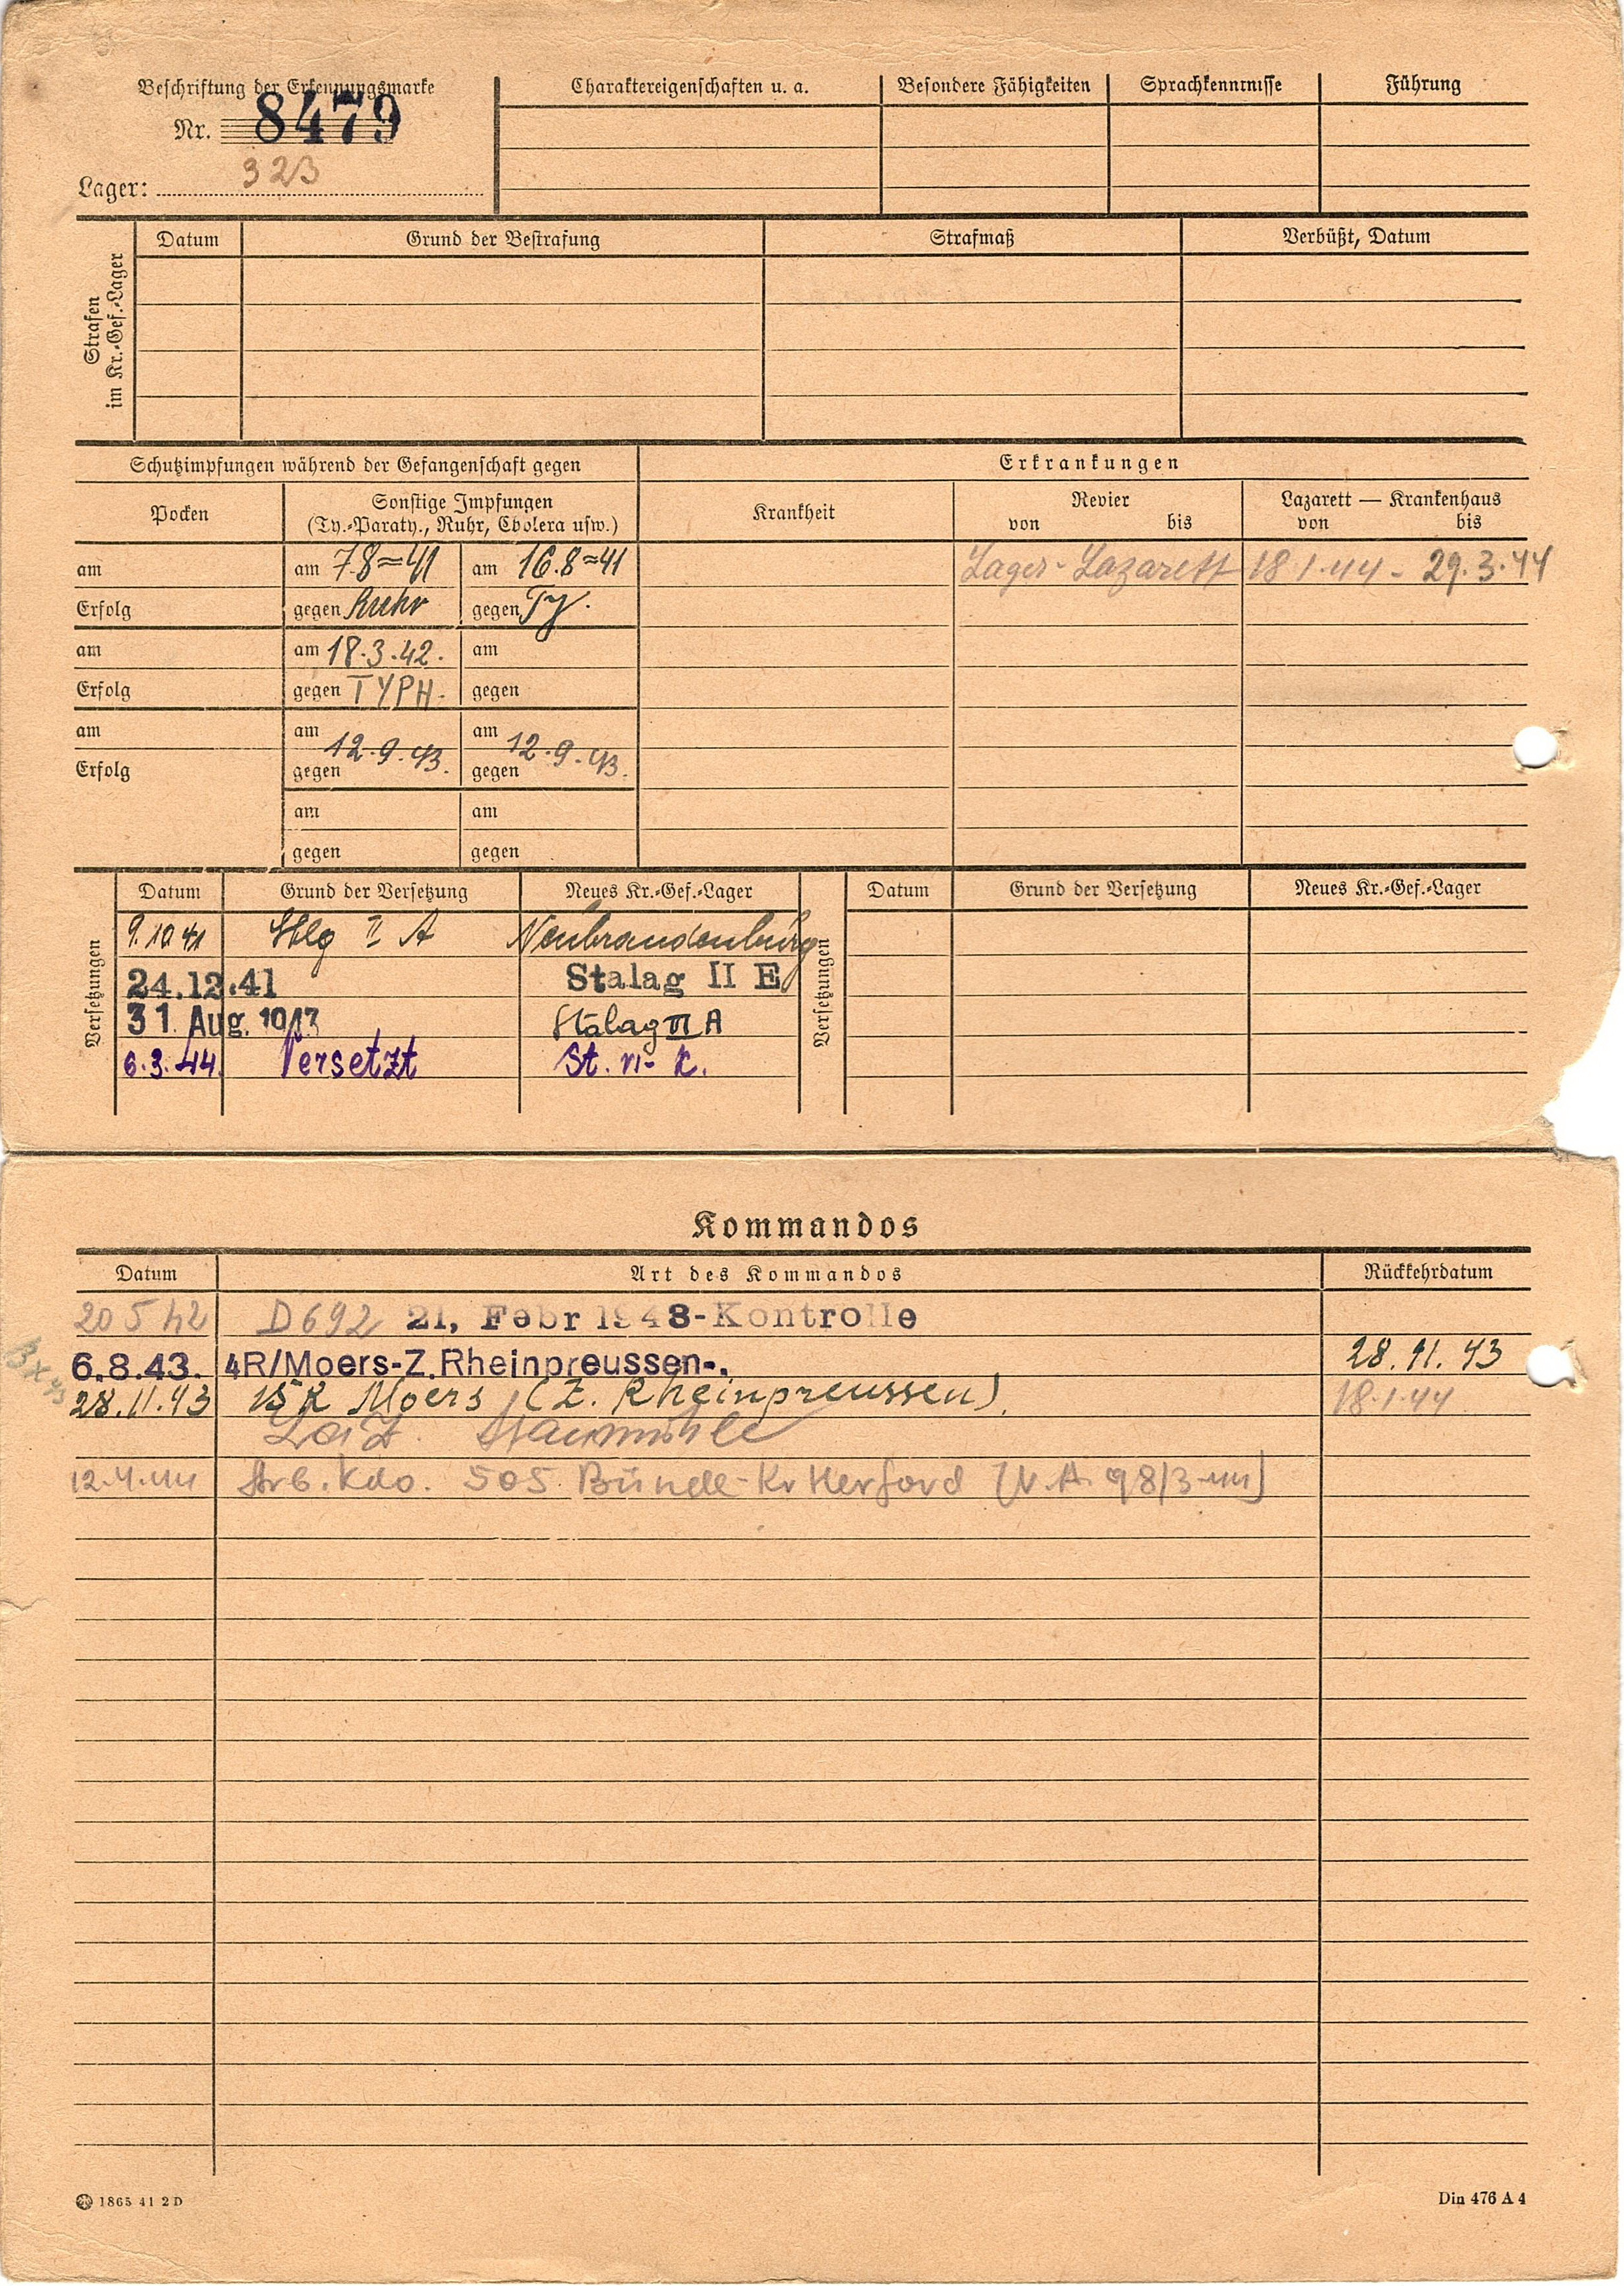 Beschriftung der Erkennungsmarke
Nr. 8479
Lager: 323
Charaktereigenschaften u. a. Besondere Fähigkeiten Sprachkenntnisse Führung
Strafen im Kr.-Gef.-Lager
Datum Grund der Bestrafung Strafmaß Verbüßt, Datum
Schutzimpfungen während der Gefangenschaft gegen Erkrankungen
Pocken Sonstige Impfungen (Ty.-Paraty., Ruhr, Cholera usw.) Krankheit Revier von bis Lazarett — Krankenhaus von bis
am am 7.8.41 am 16.8.41 Lager-Lazarett 18.1.44 - 29.3.44
Erfolg gegen Ruhr gegen Ty.
am am 18.3.42. am
Erfolg gegen TYPH. gegen
am am 12.9.43. am 12.9.43.
Erfolg gegen gegen
am am
gegen gegen
Versetzungen
Datum Grund der Versetzung Neues Kr.-Gef.-Lager
9.10.41 Stlg II A Neubrandenburg
24.12.41 Stalag II E
31. Aug. 1943 Stalag VI A
6.3.44. Versetzt St. VI- K.
Versetzungen
Datum Grund der Versetzung Neues Kr.-Gef.-Lager
Kommandos
Datum Art des Kommandos Rückkehrdatum
20 5 42 D 692 21, Febr 1943-Kontrolle
6.8.43. 4R/Moers-Z. Rheinpreussen-. 28.11.43
28.11.43 15 R Moers (Z. Rheinpreussen). 18.1.44
Laz. Staumühle
12.4.44 Arb. Kdo. 505 Bünde-Kr Herford (V.A. 98/3-44)
1865 41 2 D
Din 476 A 4